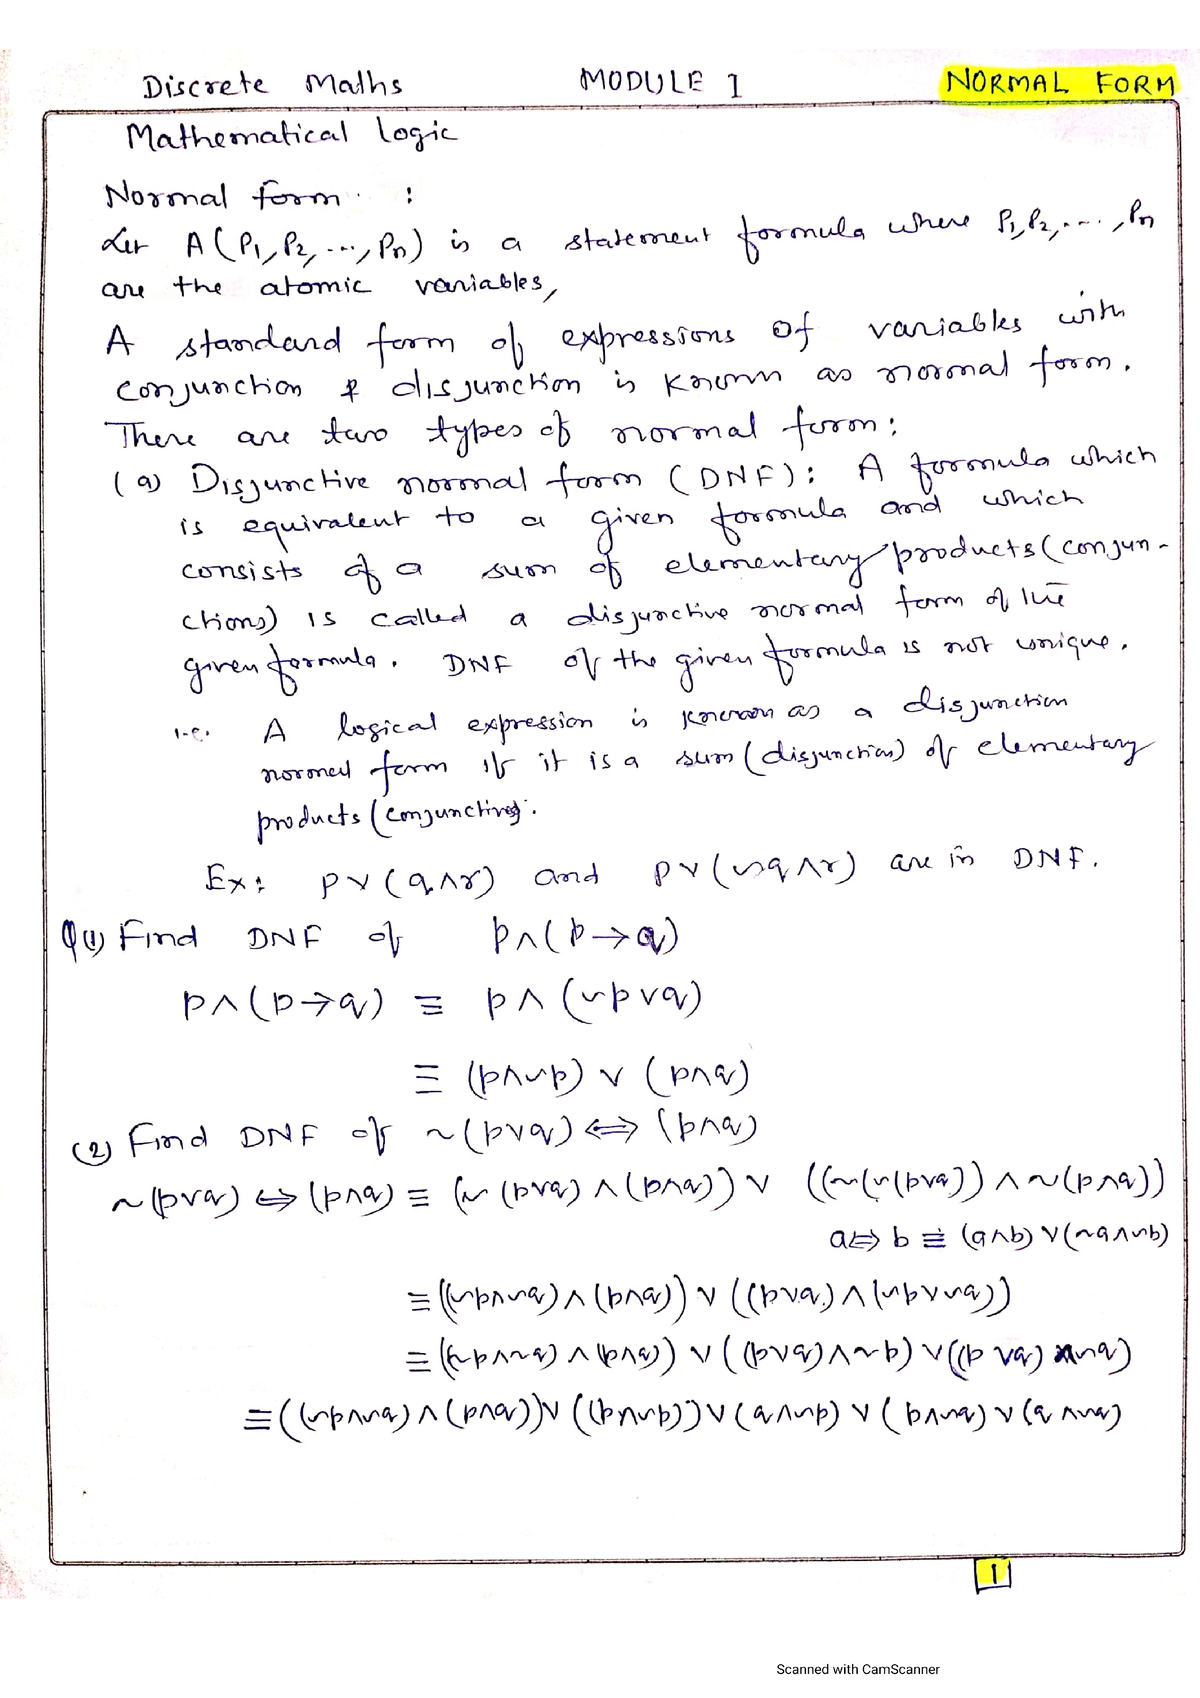 Discrete Maths MODULE 1 NORMAL FORM
Mathematical logic
Normal form :
Let A(P1, P2, ..., Pn) is a statement formula where P1, P2, ..., Pn
are the atomic variables,
A standard form of expressions of variables with
conjunction & disjunction is known as normal form.
There are two types of normal form:
(a) Disjunctive normal form (DNF): A formula which
is equivalent to a given formula and which
consists of a sum of elementary products (conjun-
ctions) is called a disjunctive normal form of the
given formula. DNF of the given formula is not unique.
i.e. A logical expression is known as a disjunction
normal form if it is a sum (disjunction) of elementary
products (conjunctions).
Ex: p∨(q∧r) and p∨(~q∧r) are in DNF.
Q(1) Find DNF of p∧(p→q)
p∧(p→q) ≡ p∧(~p∨q)
≡ (p∧~p) ∨ (p∧q)
(2) Find DNF of ~(p∨q) ⇔ (p∧q)
~(p∨q) ⇔ (p∧q) ≡ (~(p∨q) ∧ (p∧q)) ∨ ((~(~(p∨q)) ∧ ~(p∧q))
a⇔b ≡ (a∧b)∨(~a∧~b)
≡ ((~p∧~q)∧(p∧q)) ∨ ((p∨q)∧(~p∨~q))
≡ ((~p∧~q)∧(p∧q)) ∨ ((p∨q)∧~p) ∨ ((p∨q)∧~q)
≡ ((~p∧~q)∧(p∧q))∨ ((p∧~p))∨(q∧~p) ∨ (p∧~q) ∨ (q∧~q)
1
Scanned with CamScanner